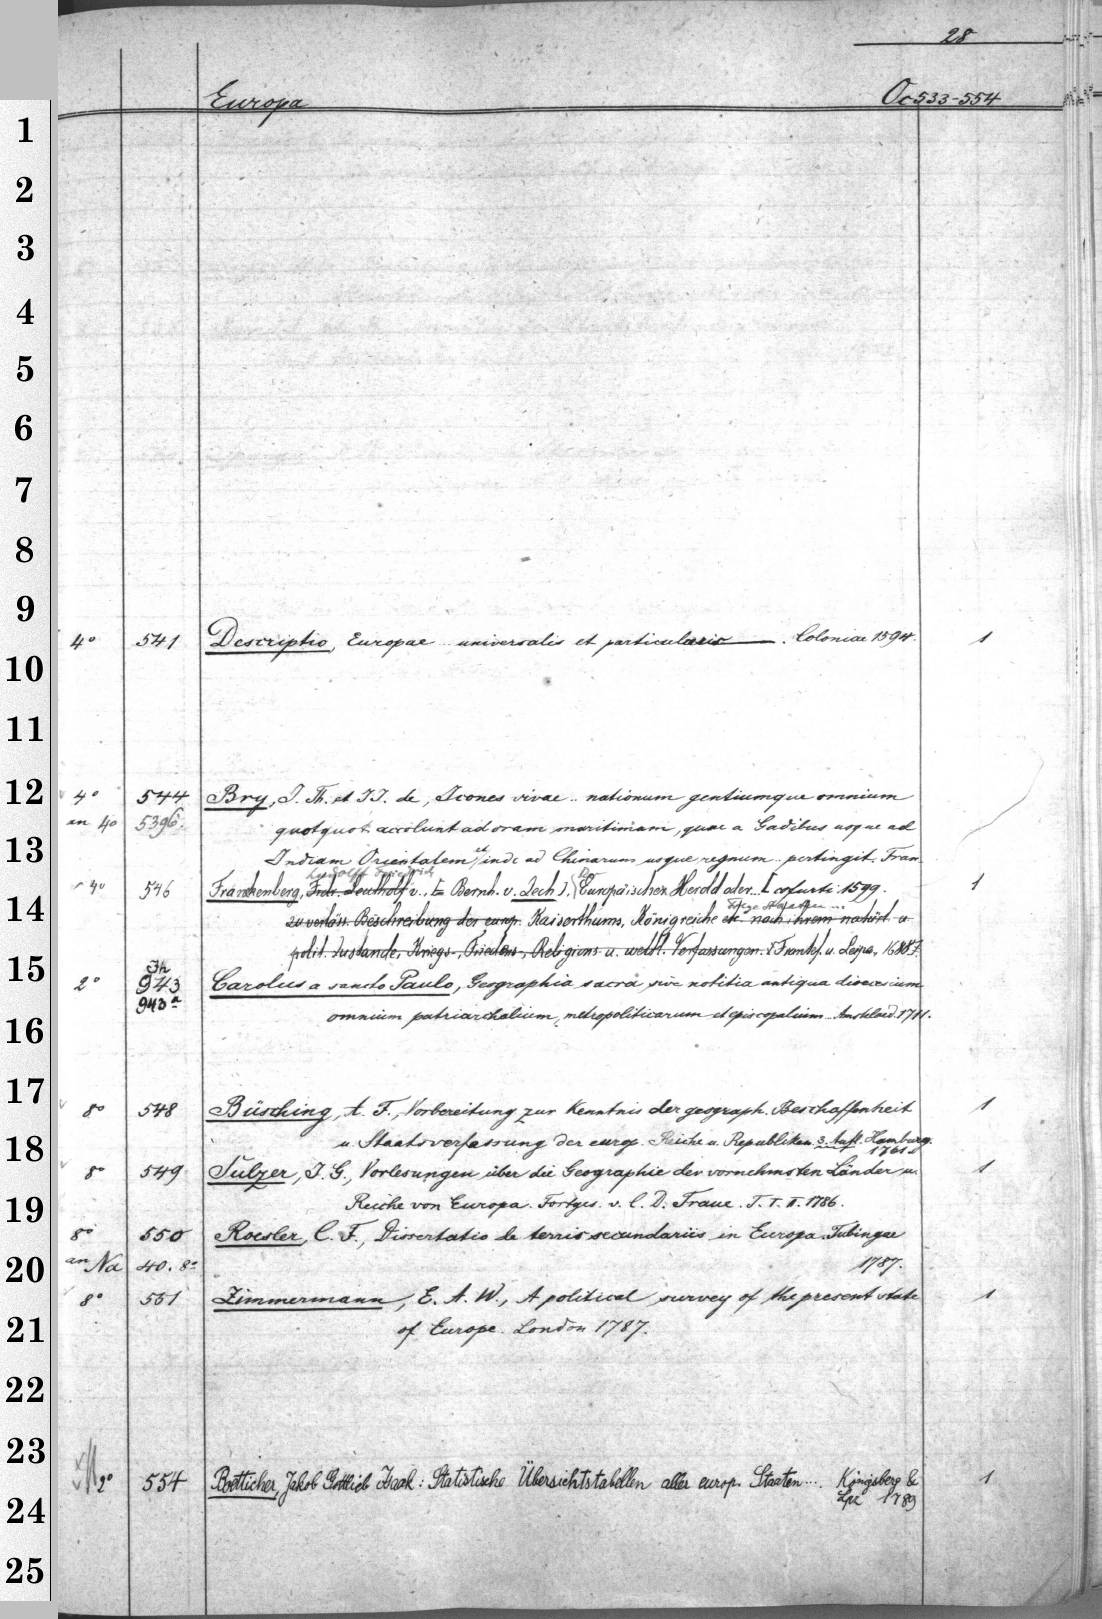 28
Europa Oc 533-554
1
2
3
4
5
6
7
8
9
4° 541 Descriptio, Europae .. universalis et particularis . Coloniae 1594. 1
10
11
12
4° 544 Bry, J. Th. et J J. de, Icones vivae .. nationum gentiumque omnium
an 4° 5396. quotquot accolunt ad oram maritimam, quae a Gadibus usque ad
13
Indiam Orientalem et inde ad Chinarum usque regnum .. pertingit. Fran
Ludolff Friedrich
4° 546 Franckenberg, Frdr. Leutholf v. [= Bernh. v. Zech]. Europäischer Herold oder.. [cofurti 1599. 1
14
zu verläss. Beschreibung der europ. Kaiserthums, Königreiche etc. nach ihrem natürl. u.
polit. Zustande, Kriegs-, Friedens-, Religions- u. weltl. Verfassungen. Frankf. u. Leipz. 1688
15
2° Jh 943 943a Carolus a sancto Paulo, Geographia sacra sive notitia antiqua dioecesium
omnium patriarchalium, metropoliticarum et episcopalium .. Amstelaed. 1711.
16
17
8° 548 Büsching, A. F., Vorbereitung zur Kenntnis der geograph. Beschaffenheit 1
18
u. Staatsverfassung der europ. Reiche u. Republiken. 3. Aufl. Hamburg. 1761
8° 549 Sulzer, J. G., Vorlesungen über die Geographie der vornehmsten Länder u. 1
19
Reiche von Europa. Fortges. v. C. D. Traue. T. I. II. 1786.
8° 550 Roesler, C. F., Dissertatio de terris secundariis in Europa. Tubingae
20
an Na 40. 8° 1787.
8° 551 Zimmermann, E. A. W., A political survey of the present state 1
21
of Europe. London 1787.
22
23
2° 554 Boetticher, Jakob Gottlieb Isaak: Statistische Übersichtstabellen aller europ. Staaten .... Königsberg & 1
24
Lpz 1789
25